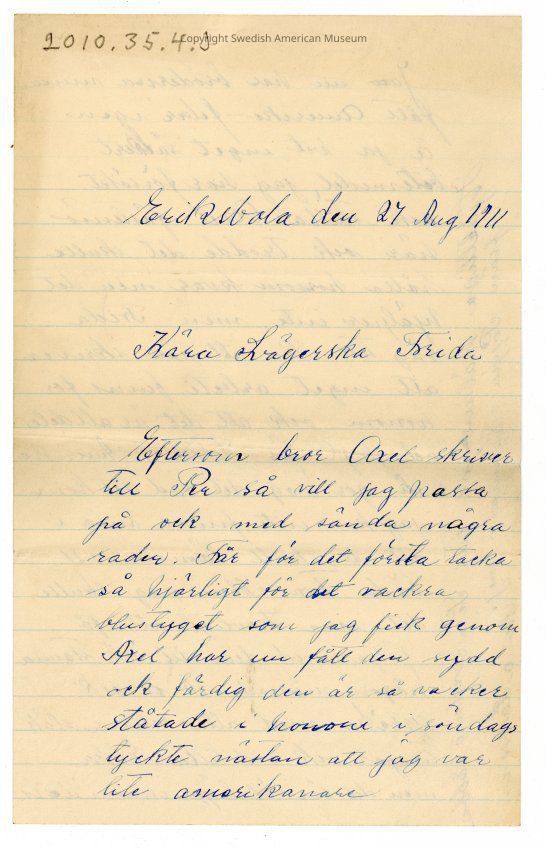 2010.35.4.
Copyright Swedish American Museum
Eriksbola den 27 Aug 1911
Kära Svägerska Frida
Eftersom bror Axel skriver
till Per så vill jag passa
på ock med sända några
rader. Får för det första tacka
så hjärligt för det vackra
blustyget som jag fick genom
Axel har nu fått den sydd
ock färdig den är så vacker
ståtade i honom i söndags
tyckte nästan att jag var
lite amerikanare